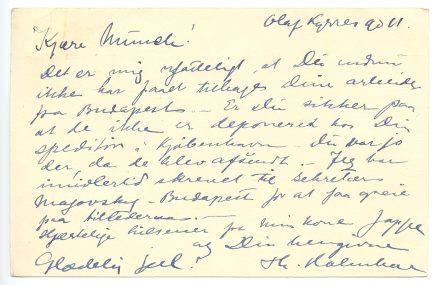 Olaf Kyrres gd 11.
Kjære Munch!
Det er mig ufatteligt, at Du endnu
ikke har faaet tilbage Dine arbeider
fra Budapest. – Er Du sikker paa
at de ikke er deponeret hos Din
speditör i Kjöbenhavn – Du var jo
der da de blev afsendt. – Jeg har
imidlertid skrevet til sekretær
Majovsky – Budapest for at faa greie
paa billederne. –
Hjertelige hilsener fra min kone Jappe
og Din hengivne
Glædelig jul! Th.